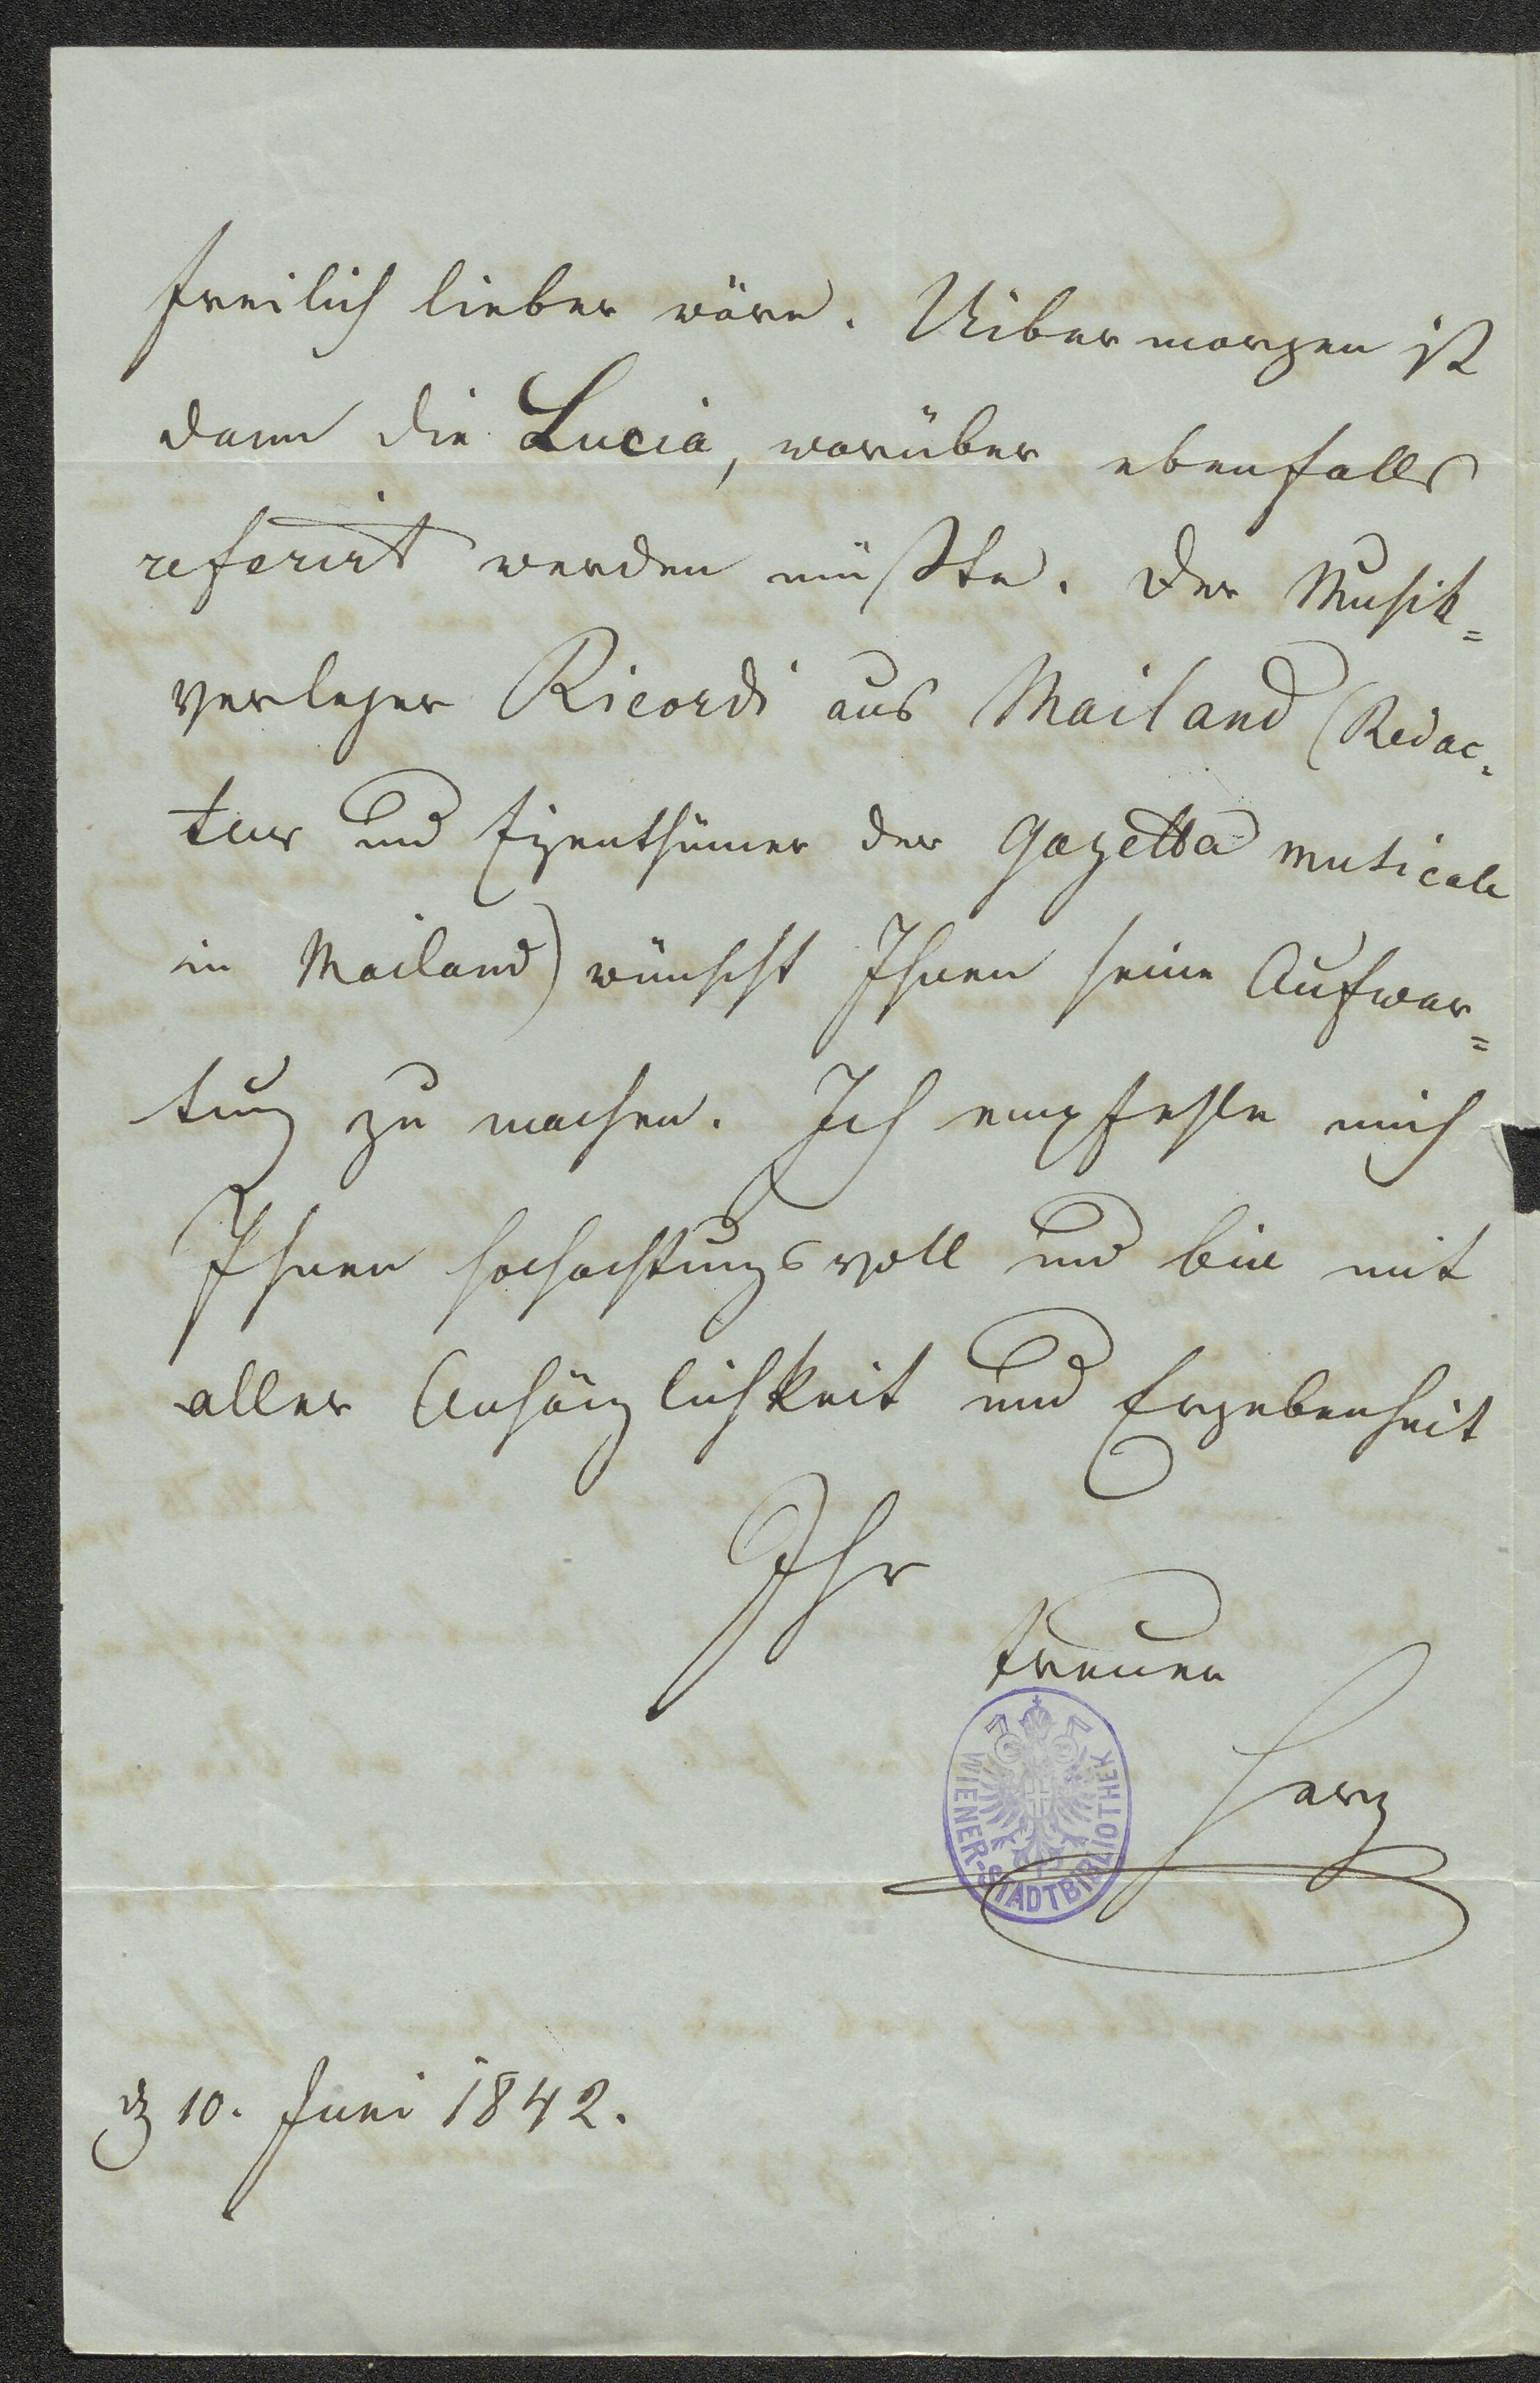 freilich lieber wäre. Uibermorgen ist
dann die Lucia, worüber ebenfalls
referirt werden müßte. Der Musik=
verleger Ricordi aus Mailand (Redac=
teur und Eigenthümer der Gazetta musicale
in Mailand) wünscht Ihnen seine Aufwar=
tung zu machen. Ich empfehle mich
Ihnen hochachtungsvoll und bin mit
aller Anhänglichkeit und Ergebenheit
Ihr
treuer
WIENER-STADTBIBLIOTHEK
10. Juni 1842.